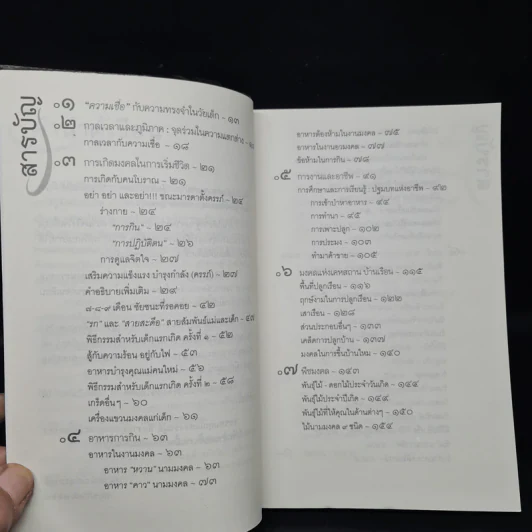 สารบัญ
๐๑ "ความเชื่อ" กับความทรงจำในวัยเด็ก - ๑๓
๐๒ กาลเวลาและภูมิภาค : จุดร่วมในความแตกต่าง - ๑๗
กาลเวลากับความเชื่อ - ๑๘
๐๓ การเกิดมงคลในการเริ่มชีวิต - ๒๑
การเกิดกับคนโบราณ - ๒๑
อย่า อย่า และอย่า!!! ขณะมารดาตั้งครรภ์ - ๒๔
ร่างกาย - ๒๔
"การกิน" - ๒๔
"การปฏิบัติตน" - ๒๖
การดูแลจิตใจ - ๒๗
เสริมความแข็งแรง บำรุงกำลัง (ครรภ์) - ๒๗
คำอธิบายเพิ่มเติม - ๒๙
๗-๘-๙ เดือน ชัยชนะที่รอคอย - ๔๒
"รก" และ "สายสะดือ" สายสัมพันธ์แม่และเด็ก - ๔๗
พิธีกรรมสำหรับเด็กแรกเกิด ครั้งที่ ๑ - ๕๒
สู้กับความร้อน อยู่กับไฟ - ๕๓
อาหารบำรุงคุณแม่คนใหม่ - ๕๖
พิธีกรรมสำหรับเด็กแรกเกิด ครั้งที่ ๒ - ๕๘
เกร็ดอื่นๆ - ๖๐
เครื่องแขวนมงคลแก่เด็ก - ๖๑
๐๔ อาหารการกิน - ๖๓
อาหารในงานมงคล - ๖๓
อาหาร "หวาน" นามมงคล - ๖๓
อาหาร "คาว" นามมงคล - ๗๓
อาหารต้องห้ามในงานมงคล - ๗๕
อาหารในงานอวมงคล - ๗๗
ข้อห้ามในการกิน - ๗๘
๐๕ การงานและอาชีพ - ๙๑
การศึกษาและการเรียนรู้ : ปฐมบทแห่งอาชีพ - ๙๒
การเข้าป่าหาอาหาร - ๙๔
การทำนา - ๙๕
การเพาะปลูก - ๑๐๒
การประมง - ๑๐๓
ทำมาค้าขาย - ๑๐๕
๐๖ มงคลแห่งเคหสถาน บ้านเรือน - ๑๑๕
พื้นที่ปลูกเรือน - ๑๑๖
ฤกษ์งามในการปลูกเรือน - ๑๒๒
เสาเรือน - ๑๒๘
ส่วนประกอบอื่นๆ - ๑๓๓
เคล็ดการปลูกบ้าน - ๑๓๗
มงคลในการขึ้นบ้านใหม่ - ๑๔๐
๐๗ พืชมงคล - ๑๔๓
พันธุ์ไม้ - ดอกไม้ประจำวันเกิด - ๑๔๔
พันธุ์ไม้ประจำปีเกิด - ๑๔๔
พันธุ์ไม้ที่ให้คุณในด้านต่างๆ - ๑๕๐
ไม้นามมงคล ๙ ชนิด - ๑๕๔